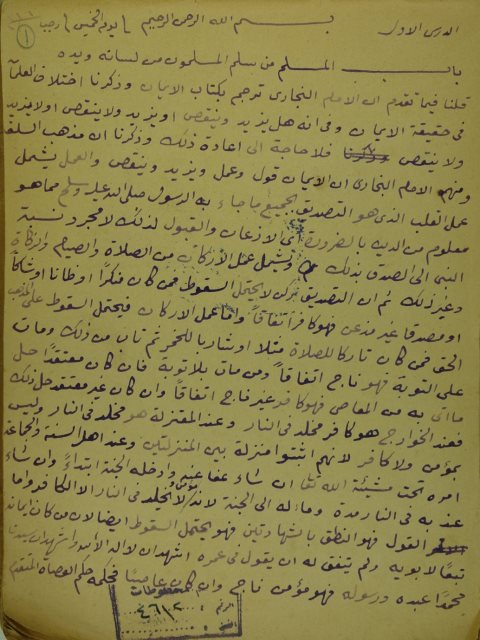 الدرس الاول بسم الله الرحمن الرحيم يوم الخميس
باب المسلم من سلم المسلمون من لسانه ويده
قلنا فيما تقدم ان الامام البخارى ترجم بكتاب الايمان وذكرنا اختلاف العلماء
فى حقيقة الايمان وفى انه هل يزيد وينقص او يزيد ولا ينقص اولا يزيد
ولا ينقص فلا حاجة الى اعادة ذلك وذكرنا ان مذهب السلف
ومنهم الامام البخارى ان الايمان قول وعمل ويزيد وينقص والعمل يشمل
عمل القلب الذى هو التصديق بجميع ما جاء به الرسول صلى الله عليه وسلم مما هو
معلوم من الدين بالضرورة اى الاذعان والقبول لذلك لا مجرد نسبة
النبى الى الصدق بذلك ويشمل عمل الاركان من الصلاة والصيام والزكاة
وغير ذلك ثم ان التصديق ركن لا يحتمل السقوط فمن كان منكرا او ظانا او شاكا
او مصدقا غير مذعن فهو كافر اتفاقا واما عمل الاركان فيحتمل السقوط على المذهب
الحق فمن كان تاركا للصلاة مثلا او شاربا للخمر ثم تاب من ذلك ومات
على التوبة فهو ناج اتفاقا ومن مات بلا توبة فان كان معتقدا حل
ما اتى به من المعاصى فهو كافر غير ناج اتفاقا وان كان غير معتقد حل ذلك
فعند الخوارج هو كافر مخلد فى النار وعند المعتزلة هو مخلد فى النار وليس
بمؤمن ولا كافر لانهم اثبتوا منزلة بين المنزلتين وعند اهل السنة والجماعة
امره تحت مشيئة الله تعالى ان شاء عفا عنه وادخله الجنة ابتداء وان شاء
عذبه فى النار مدة ومآله الى الجنة لانه لا يخلد فى النار الا الكافر واما
القول فهو النطق بالشهادتين فهو يحتمل السقوط ايضا لان من كان ايمانه
تبعا لابويه ولم يتفق له ان يقول فى عمره اشهد ان لا اله الا الله واشهد ان سيدنا
محمدا عبده ورسوله فهو مؤمن ناج وان كان عاصيا فحكمه حكم العصاة المتقدم
المخطوطات
الرقم : ٤٦١٢